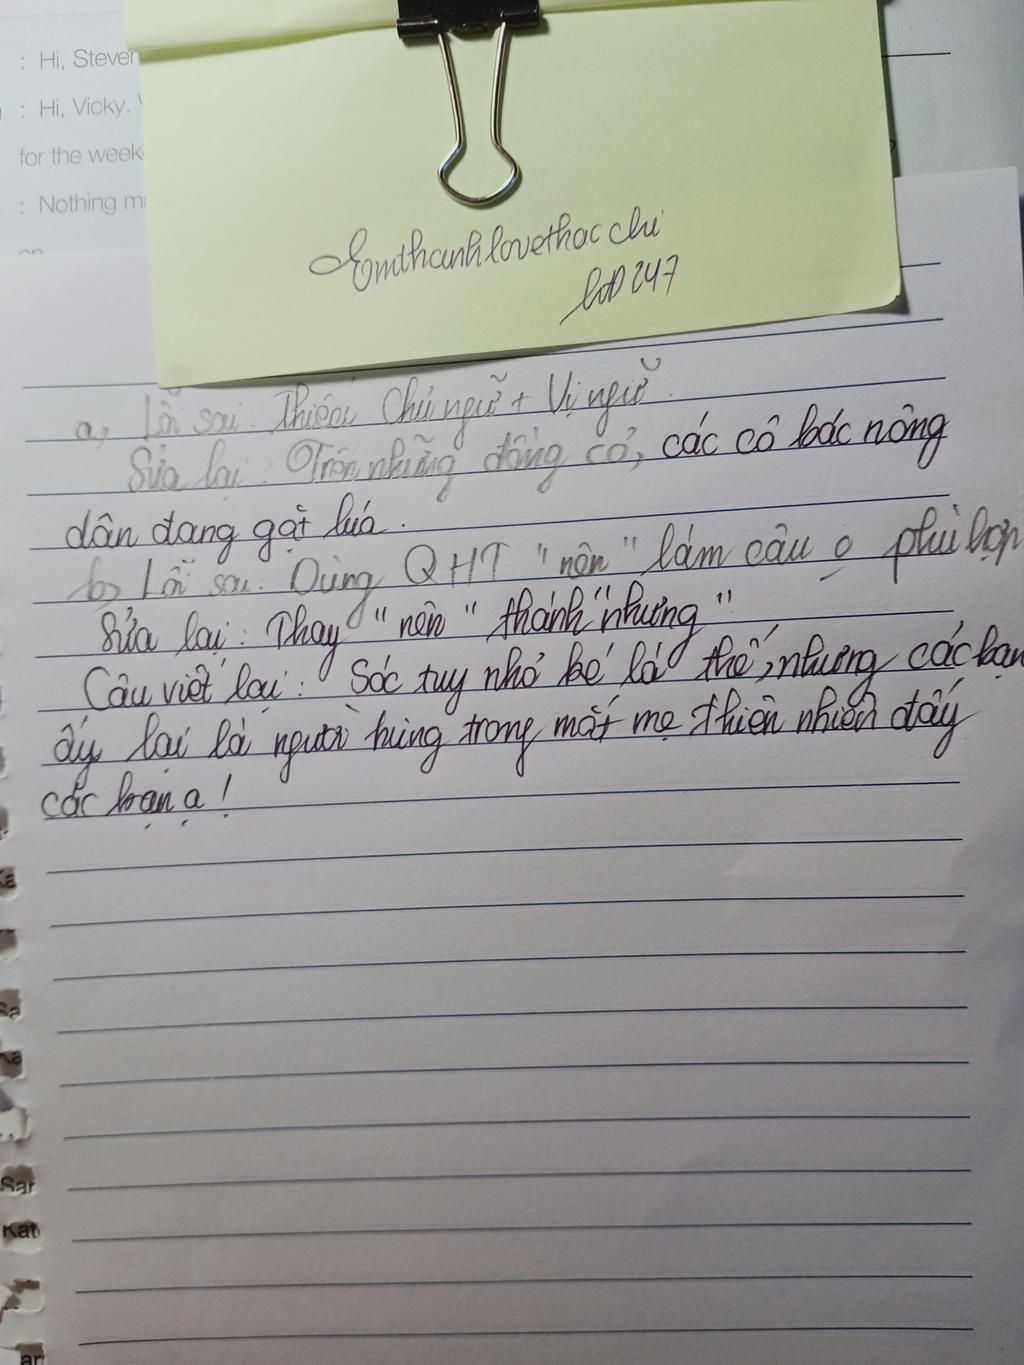 : Hi, Steven
: Hi, Vicky.
for the week
: Nothing m
on
Emthanhlovethac chi
247
a, Lỗi sai: Thiếu Chủ ngữ + Vị ngữ.
Sửa lại: Trên những đồng cỏ, các cô bác nông
dân đang gặt lúa.
b, Lỗi sai: Dùng QHT "nên" làm câu o phù hợp
Sửa lại: Thay "nên" thành "nhưng"
Câu viết lại: Sóc tuy nhỏ bé là thế, nhưng các bạn
ấy lại là người hùng trong mắt mẹ thiên nhiên đấy
các bạn ạ!
Ka
Sa
Ka
Sar
Kat
ar